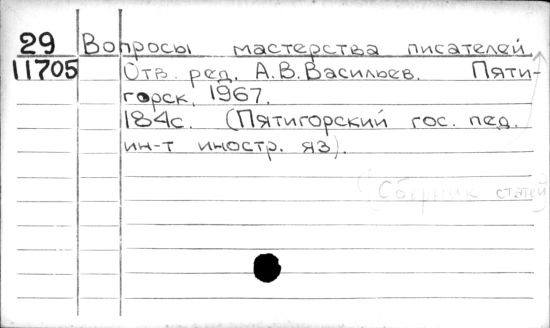 29 Вопросы мастерства писателей.
11705 Отв. ред. А.В.Васильев. Пяти-
горск, 1967.
184с. (Пятигорский гос. пед.
ин-т иностр. яз).
(Сборник статей)